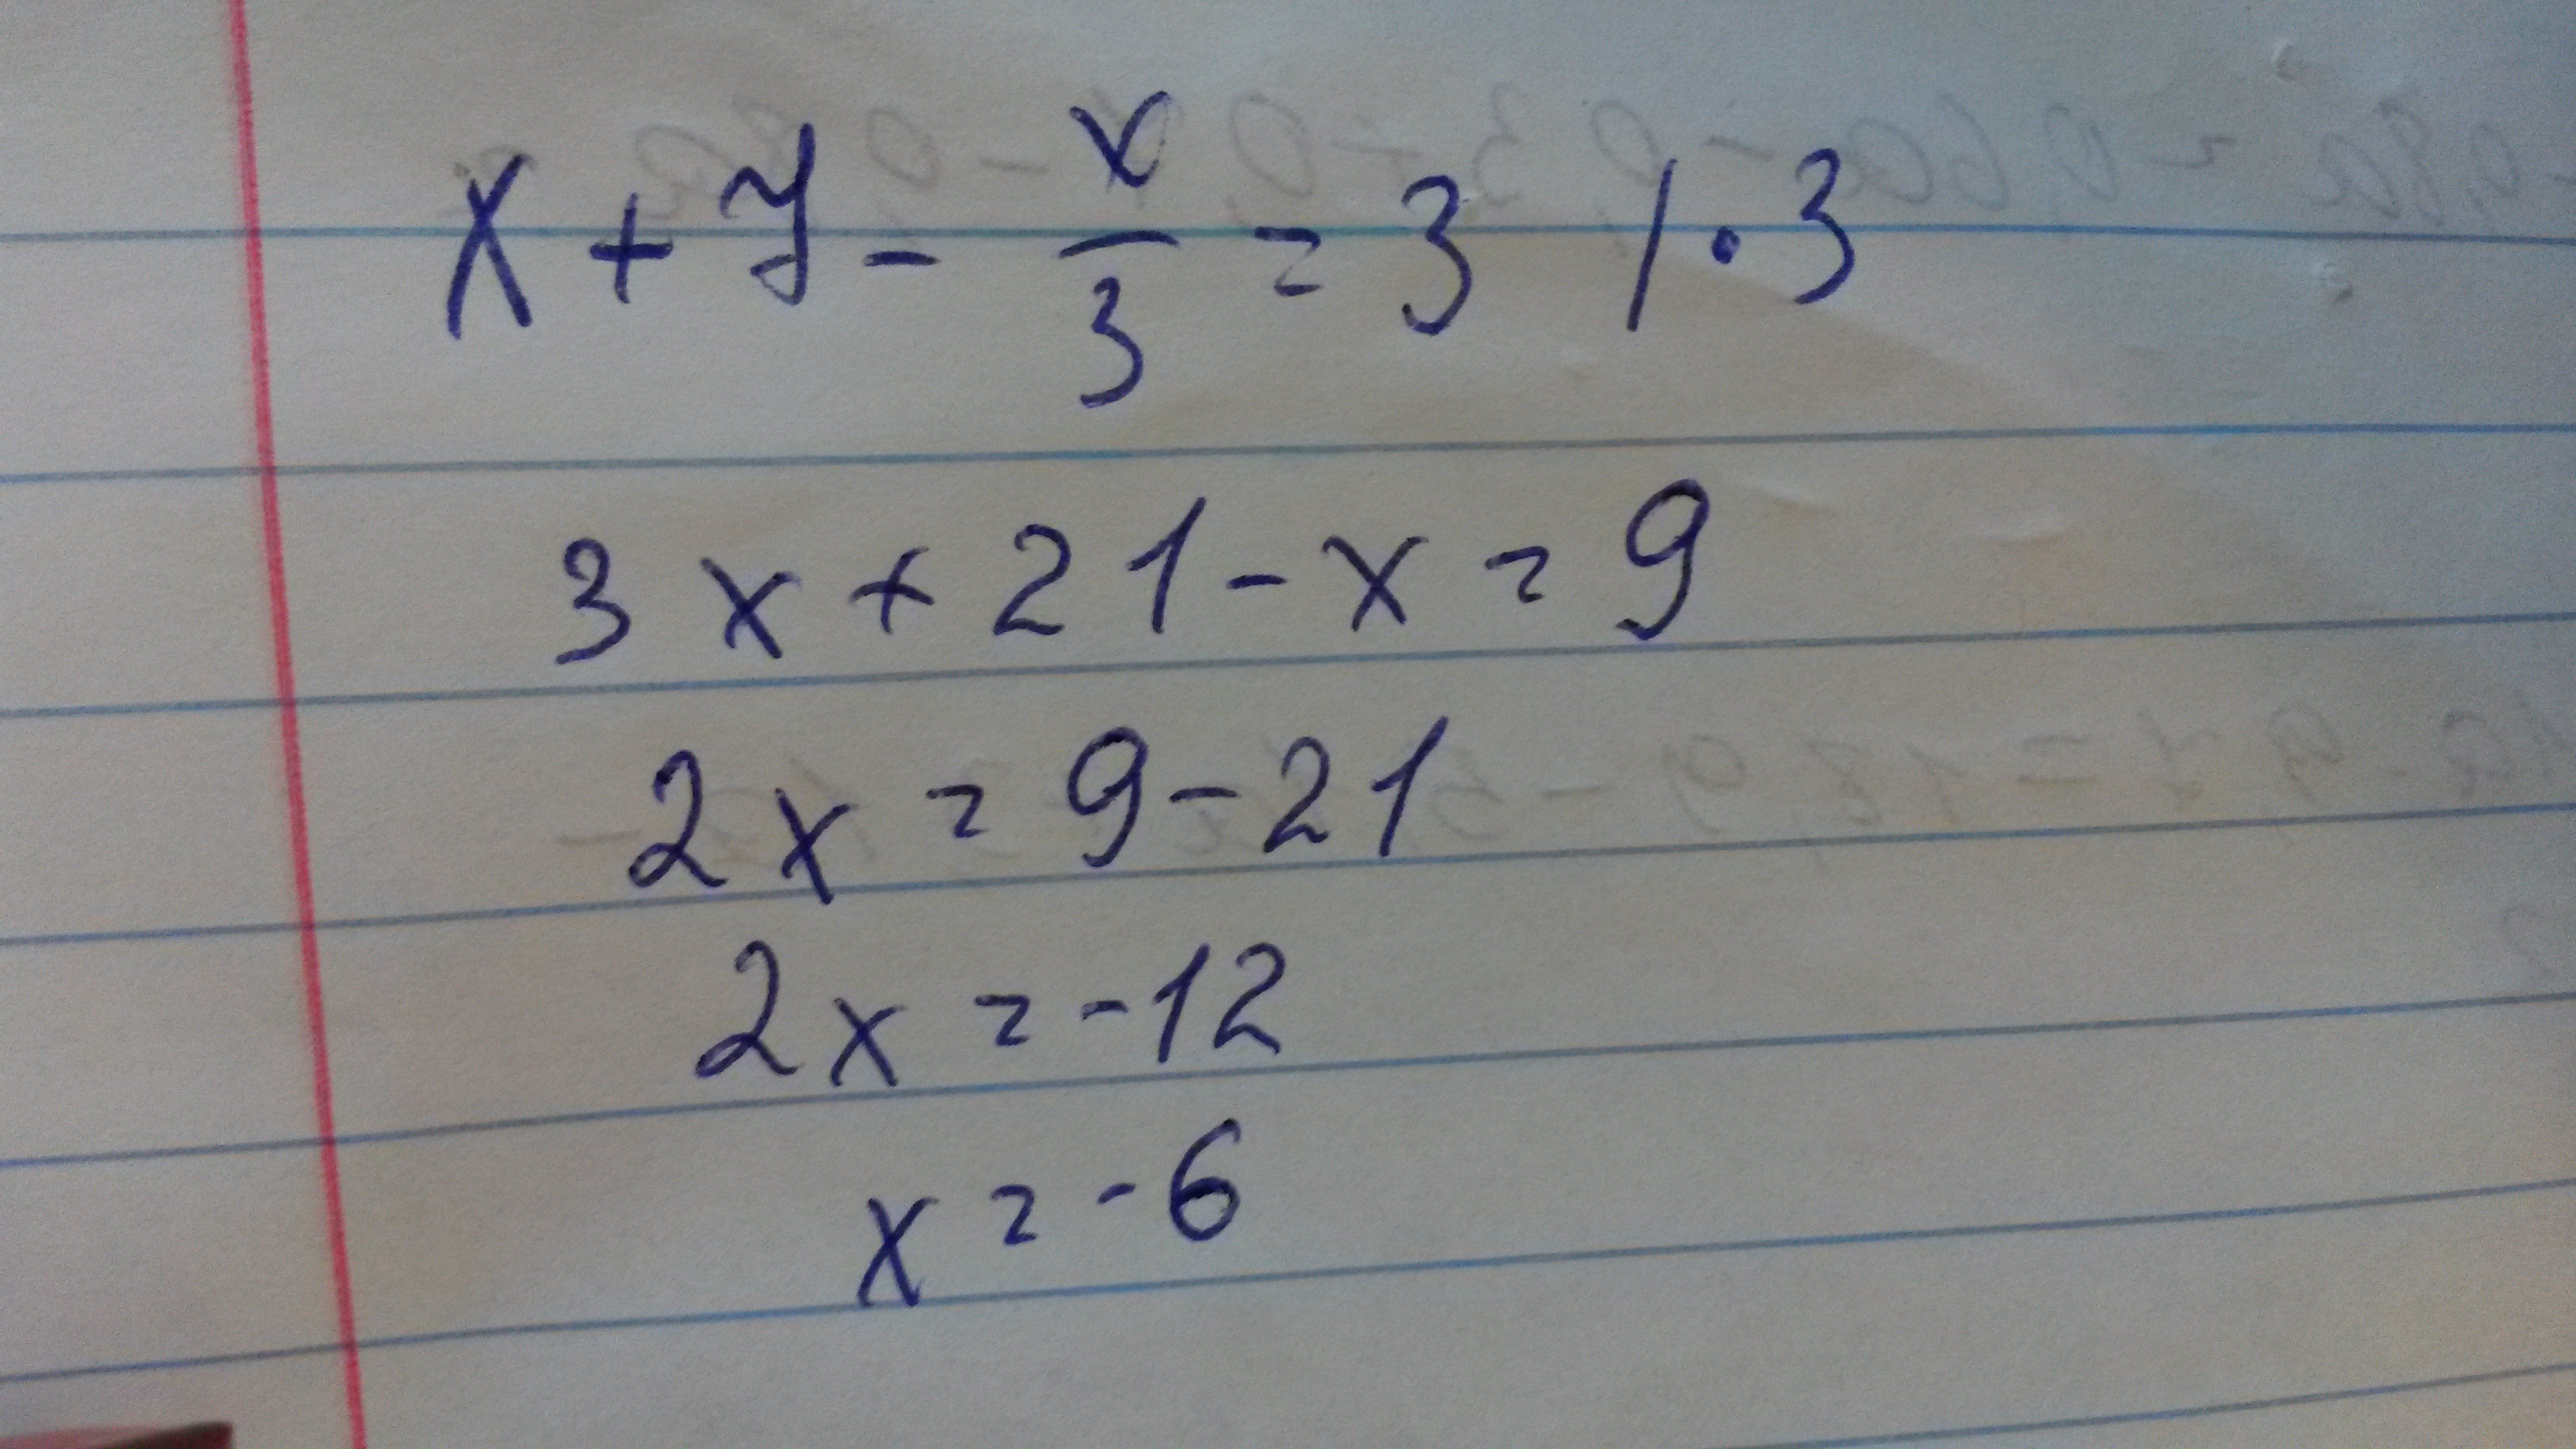 x + 7 - x/3 = 3 / · 3
3x + 21 - x = 9
2x = 9 - 21
2x = -12
x = -6